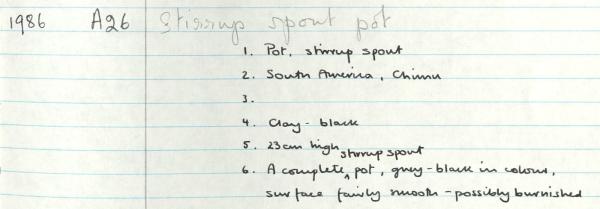 1986 A26 Stirrup spout pot
1. Pot, stirrup spout
2. South America, Chimu
3.
4. Clay - black
5. 23cm high
6. A complete ^ stirrup spout pot, grey-black in colour,
surface fairly smooth - possibly burnished